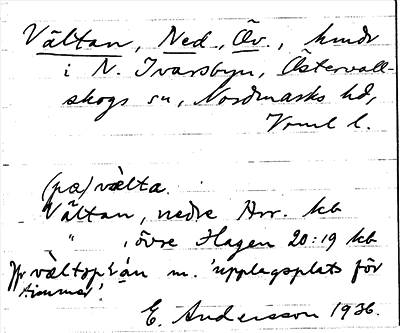 Vältan, Ned., Öv., hmdr
i N. Ivarsbyn, Östervall-
skogs sn, Nordmarks hd,
Vrml l.
(pæ) vèlta.
Vältan, nedre Arr. kb
" , övre Hagen 20:19 kb
Jfr væ̀ltəpḷán m. 'upplagsplats för
timmer'.
E. Andersson 1936.